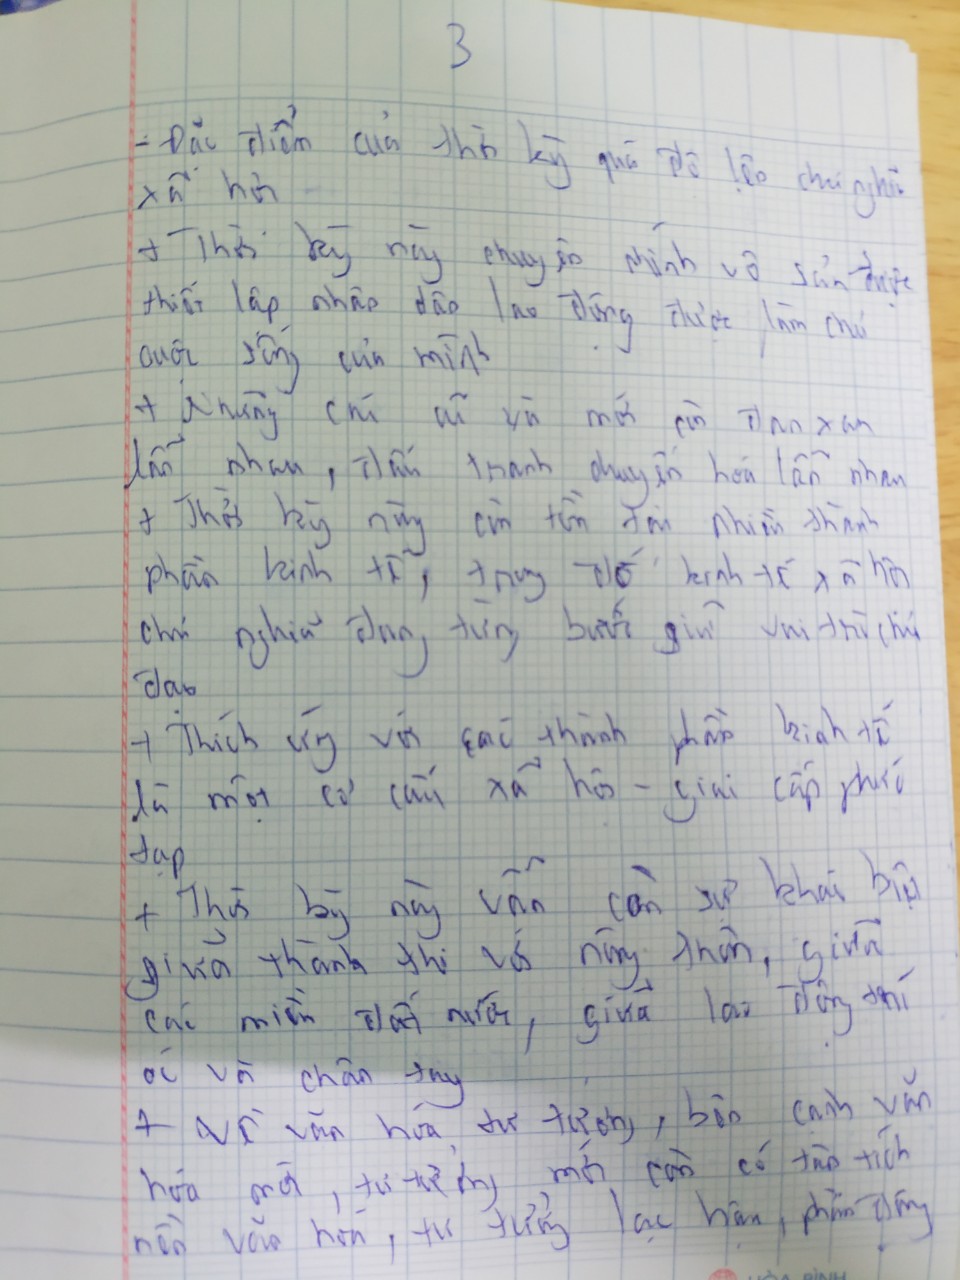 3
- Đặc điểm của thời kỳ quá độ lên chủ nghĩa
xã hội
+ Thời kỳ này chuyên chính vô sản được
thiết lập nhân dân lao động được làm chủ
cuộc sống của mình
+ Những cái cũ và mới còn đan xen
lẫn nhau, đấu tranh chuyển hoá lẫn nhau
+ Thời kỳ này còn tồn tại nhiều thành
phần kinh tế, trong đó kinh tế xã hội
chủ nghĩa đang từng bước giữ vai trò chủ
đạo
+ Thích ứng với các thành phần kinh tế
là một cơ cấu xã hội - giai cấp phức
tạp
+ Thời kỳ này vẫn còn sự khác biệt
giữa thành thị với nông thôn, giữa
các miền đất nước, giữa lao động trí
óc và chân tay
+ Về văn hóa tư tưởng, bên cạnh văn
hóa mới, tư tưởng mới còn có tàn tích
nền văn hóa, tư tưởng lạc hậu, phản động